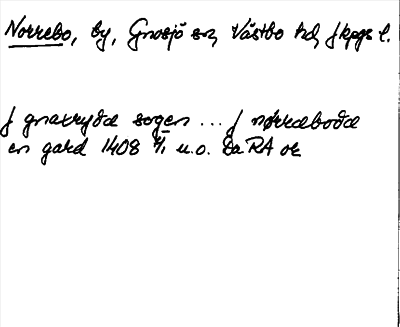 Norrebo, by, Gnosjö sn, Västbo hd, Jkpgs l.
J gnavryda sogen ... J nørraboda
en gard 1408 4/1 u.o. DaRA or